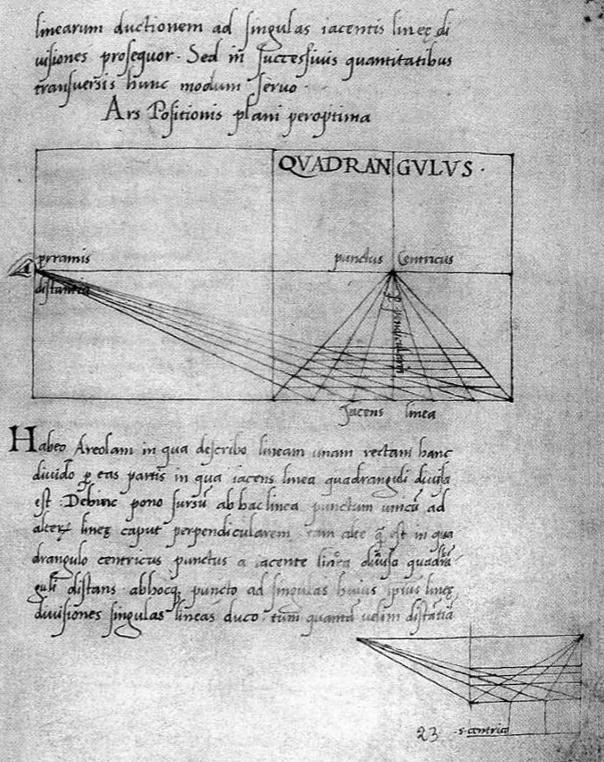 linearum ductionem ad singulas iacentis lineę di
uisiones prosequor. Sed in successiuis quantitatibus
transuersis hunc modum seruo.
Ars Positionis plani peroptima
QVADRANGVLVS.
pyramis
punctus Centricus
distantia
perpendicularis
Jacens linea
Habeo Areolam in qua describo lineam unam rectam hanc
diuido p eas partis in qua iacens linea quadranguli diuisa
est. Dehinc pono sursū ab hac linea punctum unicū ad
alterꝫ lineę caput perpendicularem tam alte q̄ est in qua
drangulo centricus punctus a iacente linea diuisa quadrā
guli distans ab hocq puncto ad singulas huius ipsius lineę
diuisiones singulas lineas duco tum quantā uelim distātiā
23 .s. centrico